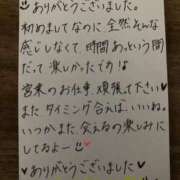 ありがとうございました。
初めましてなのに全然そんな
感じしなくて時間あっという間
だって楽しかったです!!
営業のお仕事頑張って下さい
またタイミング合えば、いいね。
いつかまた会えるの楽しみに
してるよー
♥ありがとうございました♥